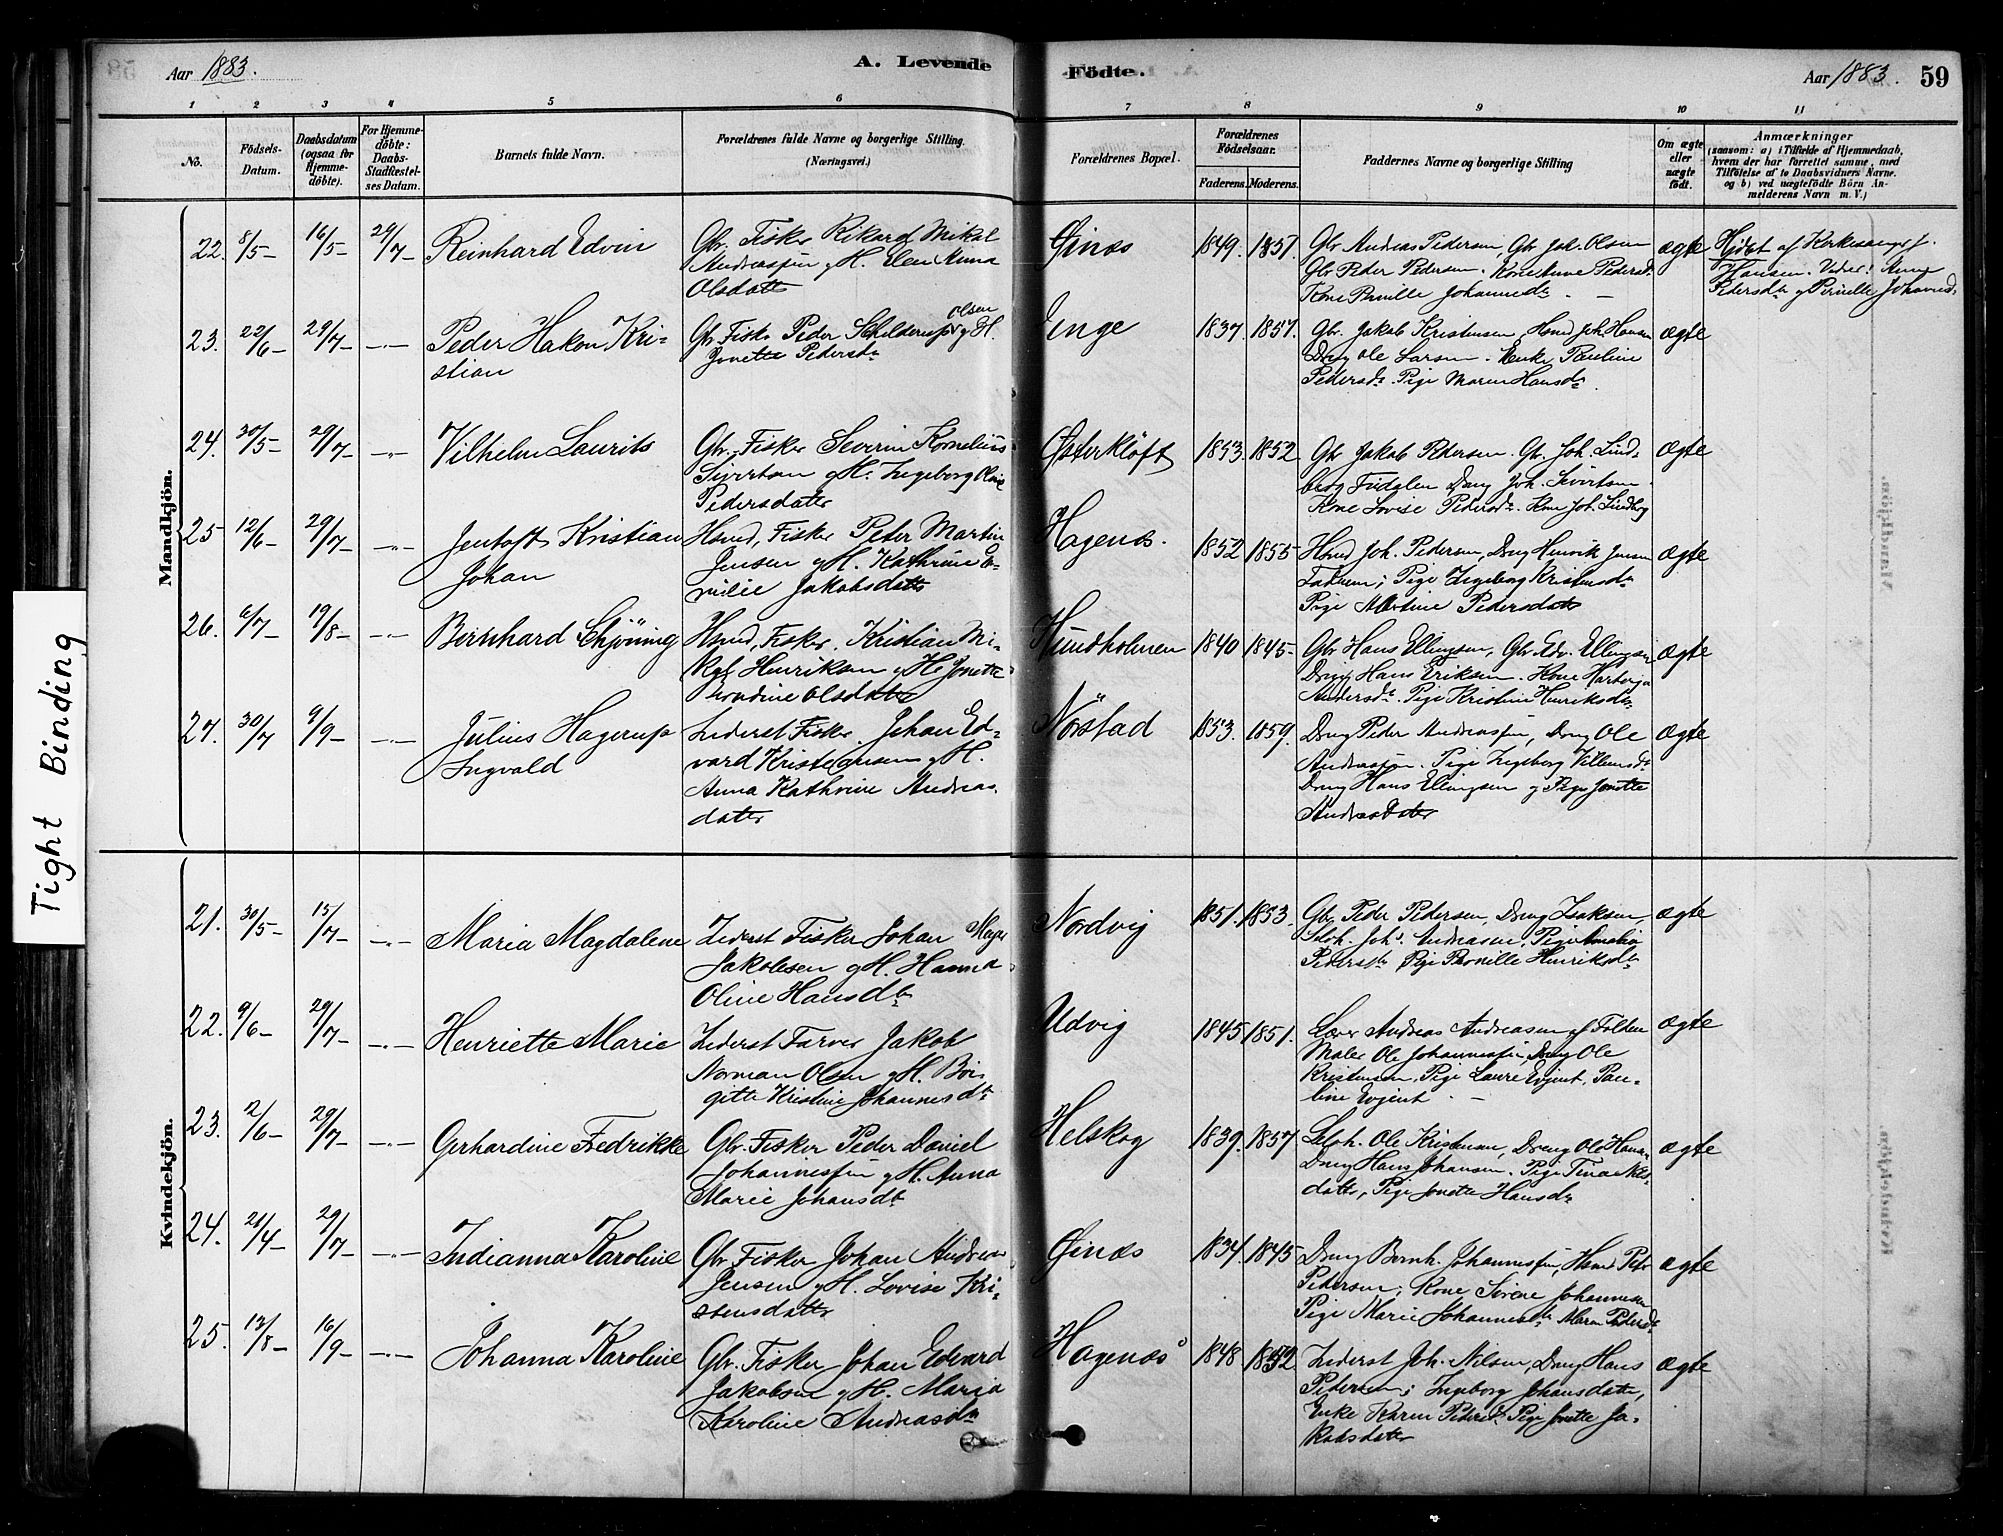 Aar 1883.
A. Levende
Födte.
Aar 1883. 59
1 2 3 4 5 6 7 8 9 10 11
No.
Födsels-
Datum.
Daabsdatum
(ogsaa for
Hjemme-
döbte).
For Hjemme-
döbte:
Daabs-
Stadfæstel-
ses Datum.
Barnets fulde Navn.
Forældrenes fulde Navne og borgerlige Stilling.
(Næringsvei.)
Forældrenes Bopæl.
Forældrenes
Födselsaar.
Faderens. Moderens.
Faddernes Navne og borgerlige Stilling
Om ægte
eller
uægte
født.
Anmærkninger
(saasom: a) i Tilfælde af Hjemmedaab,
hvem der har forrettet samme, med
Tilföielse af to Daabsvidners Navne.
og b) ved uægtefödte Börn An-
melderens Navn m. V.)
Tight Binding
Mandkjön.
22. 8/5 16/5 29/7 Reinhard Edvin
Gbr. Fisker Rikard Mikal
Andreassen g H. Elen Anna
Olsdatter
1849. 1857.
Gbr Andreas Pedersen, Gbr Joh. Olsen
Gbr Peder Pedersen. Kone Anne Pedersd.
Kone Pernille Johannesd.
ægte
Hjdøbt af Kirkesanger J.
Hansen. Vidner: Anne
Pedersdtr g Pernille Johannesd.
23. 22/6 29/7 Peder Hakon Kri-
stian
Gbr Fisker Peder Schelderup Olsen g H.
Jonette Pedersdtr
Enge 1837 1857.
Gbr. Jakob Kristensen, Hsmd Joh. Hansen
Dreng Ole Larsen. Enke Pauline
Pedersdtr. Pige Maren Hansdtr.
ægte
24. 30/5 29/7 Vilhelm Laurits
Gbr. Fisker Severin Kornelius
Sivertsen g H. Ingeborg
Pedersdatter
Østerkløft 1853. 1852
Gbr Jakob Pedersen. Gbr. Joh. Lind-
berg Dreng Joh. Sivertsen.
Kone Lovise Pedersdtr. Kone Joh. Lindberg
ægte
25 12/6 29/7 Jentoft Kristian
Johan
Hsmd, Fisker Peter Martin
Jensen g H. Kathrine E-
milie Jakobsdatter
Hagenæs. 1852 1855
Hsmd Joh. Pedersen, Dreng Henrik Jensen
Pige Ingeborg Kristensdtr
Pige Martine Pedersdatter
ægte
26. 6/7 19/8 Bernhard Schjöning
Hsmd, Fisker. Kristian Mi-
kal Henriksen g H. Jonette
Olsdatter
Hundholmen 1840 1845
Gbr Hans Ellingsen, Gbr Edv. Ellingsen
Dreng Hans Eriksen. Kone
Andersdtr. Pige Kristine Henriksdtr
ægte
27. 30/7 9/9 Julius Hagerup
Ingvald
Inderst Fisker. Johan Ed-
vard Kristensen g H.
Anna Kathrine Andreas
datter
Nörstad 1853. 1859.
Dreng Peder Andreassen, Dreng Ole
Andreassen. Pige Ingeborg Villumsdtr
Dreng Hans Ellingsen g Pige Jonette
Andreasdatter
ægte
Kvindekjön.
21. 30/5 15/7 Maria Magdalene
Inderst Fisker Johan Meyer
Jakobsen g H. Hanna
Oline Hansdtr
Nordvig 1851. 1853.
Gbr Peder Pedersen, Dreng Isaksen,
Andreasen. Pige Amalia
Pedersdtr Pige Pernille Henriksdtr
ægte
22. 9/6 29/7 Henriette Marie
Inderst Farver Jakob
Norman Olsen g H. Bir-
gitte Kristine Johannesdtr
Udvig 1845 1851.
Lærer Andreas Andreasen af Folden
Maler Ole Johannessen, Dreng Ole
Kristensen, Pige Laure Evjent, Pau-
line Evjent.
ægte
23. 2/6 29/7 Gerhardine Fredrikke
Gbr. Fisker Peder Daniel
Johannessen g H. Anna
Marie Johansdtr
Helskog 1839. 1857
Ole Kristensen, Dreng Ole Hansen
Dreng Hans Johansen. Pige Tina Nils-
datter, Pige Jonette Hansdtr
ægte
24. 21/4 29/7 Indianna Karoline
Gbr Fisker Johan Andreas
Jensen g H. Lovise Kri-
stensdatter
1834. 1845
Dreng Bernh. Johannessen, Hsmd Peter
Pedersen, Kone Sirene Johannesen
Pige Marie Johannesdtr Maren Pedersdtr
ægte
25. 13/8 16/9 Johanna Karoline
Gbr. Fisker Johan Edvard
Jakobsen g H. Maria
Karoline Andreasdtr
Hagenæs 1848 1852
Inderst Joh. Nilsen, Dreng Hans
Pedersen; Ingeborg Johansdatter,
Enke Karen Pedersd. Pige Jonette Ja-
kobsdatter
ægte